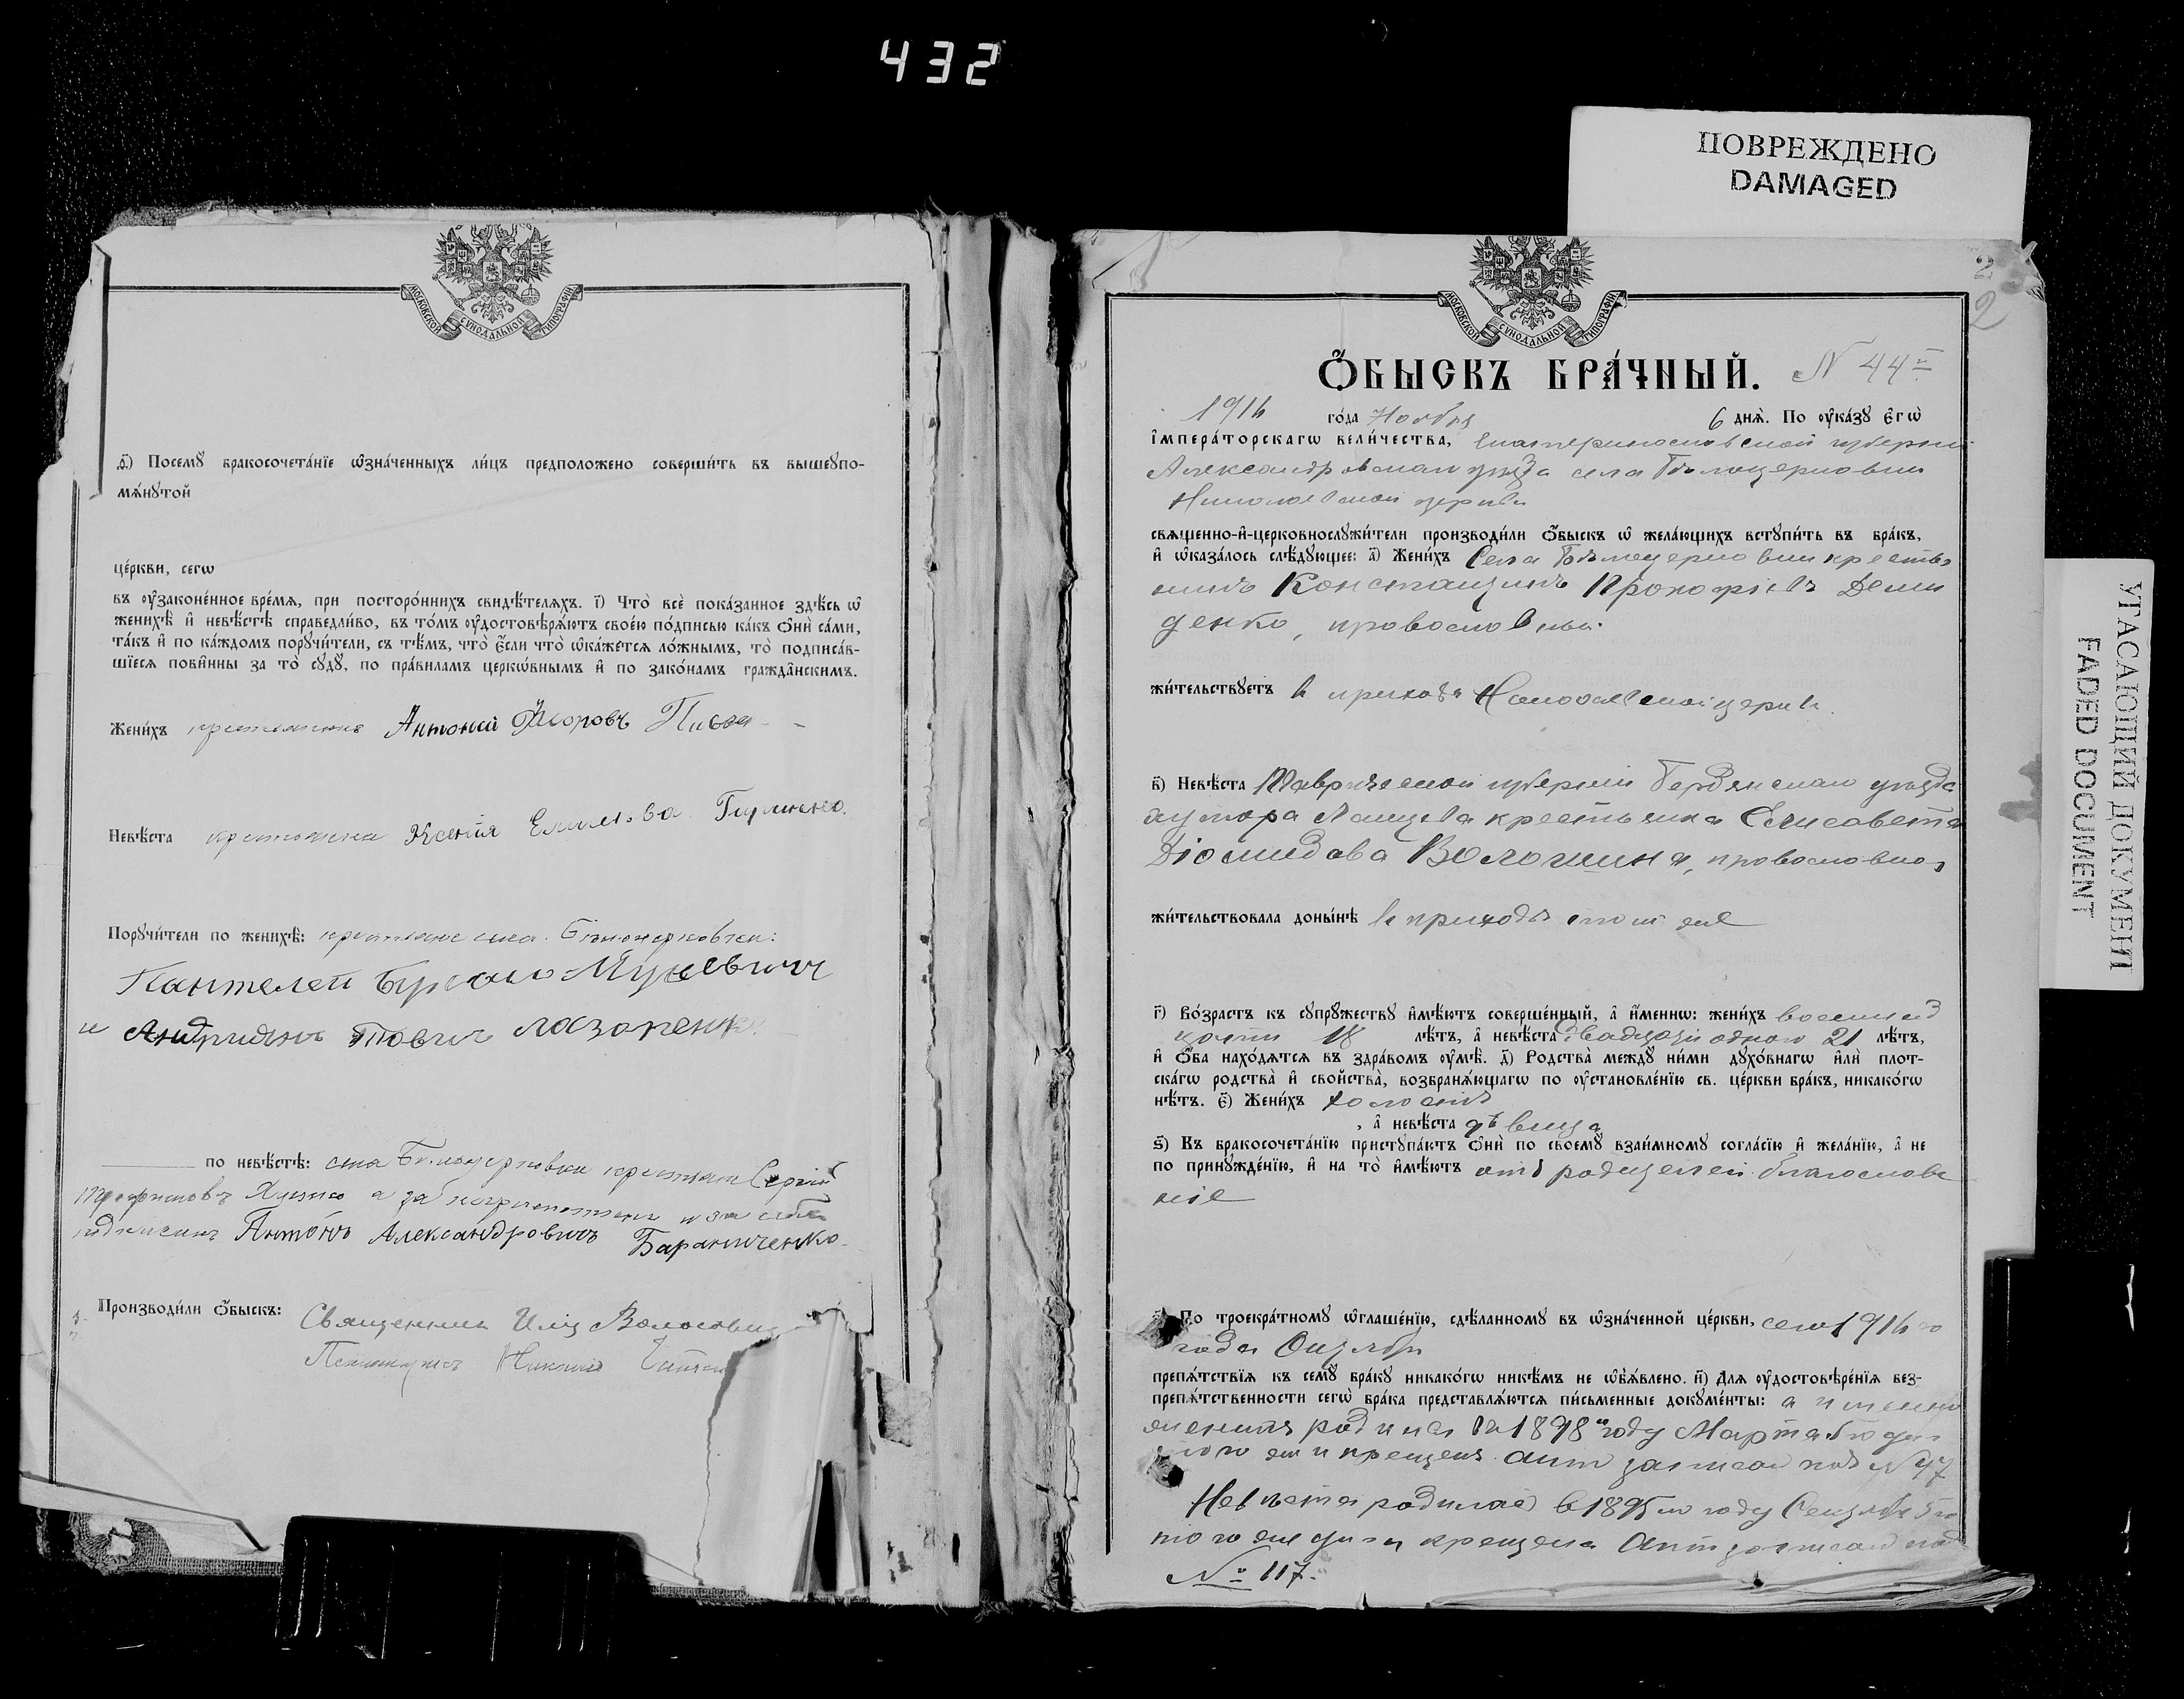 432
ПОВРЕЖДЕНО
DAMAGED
УГАСАЮЩИЙ ДОКУМЕНТ
FADED DOCUMENT
МОСКОВСКОЙ СѴНОДАЛЬНОЙ ТИПОГРАФІИ
ѳ҃) Посемꙋ бракосочета́нїе ѡ҆зна́ченныхъ ли́цъ предположено соверши́ть въ вышеꙋпо-
мѧ́нꙋтой
це́ркви, сегѡ
въ ᲂу҆законе́нное вре́мѧ, при посторо́ннихъ свидѣ́телѧхъ. і҃) Что̀ всѐ пока́занное здѣ́сь ѡ҆
женихѣ̀ и҆ невѣ́стѣ справедли́во, въ то́мъ ᲂу҆достовѣрѧ́ютъ своє́ю по́дписью ка́къ ѻ҆нѝ са́ми,
та́къ и҆ по ка́ждомъ порꙋчи́тели, съ тѣ́мъ, что̀ є҆́сли что̀ ѡ҆ка́жетсѧ ло́жнымъ, то̀ подписа́в-
шїесѧ пови́нны за то̀ сꙋдꙋ̀, по пра́виламъ церко́внымъ и҆ по зако́намъ гражда́нскимъ.
Жени́хъ Антоній Ѳеодоровъ
Невѣ́ста крестьянка Ксенія
Порꙋчи́тели по женихѣ̀: крестьяне села Бѣлоцерковки:
Пантелей
и Андріянъ Лазаренко
по невѣ́стѣ: села Бѣлоцерковки Сергій
Антонъ Александровичъ Бараниченко
Производи́ли ѻ҆́быскъ: Священникъ Илія
Псаломщикъ
МОСКОВСКОЙ СѴНОДАЛЬНОЙ ТИПОГРАФІИ
2
2
Ѻ҆́БЫСКЪ БРА́ЧНЫЙ. N 44й
1916 го́да Ноября 6 днѧ̀. По ᲂу҆ка́зꙋ є҆гѡ̀
і҆мпера́торскагѡ вели́чества, Екатеринославской губерніи
Александровскаго уѣзда села Бѣлоцерковки
Николаевской церкви
свѧщенно-и҆-церковнослꙋжи́тели производи́ли ѻ҆́быскъ ѡ҆ жела́ющихъ встꙋпи́ть въ бра́къ,
и҆ ѡ҆каза́лось слѣ́дꙋющее: а҃) Жени́хъ Села Бѣлоцерковки крестья
нинъ Константинъ Прокофіевъ Деми
денко, православный.
жи́тельствꙋетъ в приходѣ Николаевской церкви.
в҃) Невѣ́ста Таврической губерніи Бердянскаго уѣзда
хутора крестьянка Елисавета
Діомидова Волошина, православная
жи́тельствовала доны́нѣ в приходѣ той же
г҃) Во́зрастъ къ сꙋпрꙋ́жествꙋ и҆мѣ́ютъ соверше́нный, а҆ и҆́меннѡ: жени́хъ восемнад
цати 18 лѣ́тъ, а҆ невѣ́ста двадцати одного 21 лѣ́тъ,
и҆ ѻ҆́ба нахо́дѧтсѧ въ здра́вомъ ᲂу҆мѣ̀. д҃) Родства̀ междꙋ̀ ни́ми дꙋхо́внагѡ и҆лѝ плот-
ска́гѡ родства̀ и҆ сво́йства, возбранѧ́ющагѡ по ᲂу҆становле́нїю св. це́ркви бра́къ, никако́гѡ
нѣ́тъ. є҃) Жени́хъ холостъ
, а҆ невѣ́ста дѣвица
ѕ҃) Въ бракосочета́нїю пристꙋпа́ютъ ѻ҆нѝ по своемꙋ̀ взаи́мномꙋ согла́сїю и҆ жела́нїю, а҆ не
по принꙋжде́нїю, и҆ на то̀ и҆мѣ́ютъ отъ родителей благослове
ніе
По троекра́тномꙋ ѡ҆глаше́нїю, сдѣ́ланномꙋ въ ѡ҆зна́ченной це́ркви, сего 1916 го
года Октября
препѧ́тствїѧ къ семꙋ̀ бра́кꙋ никако́гѡ никѣ́мъ не ѡ҆б̾ѧ́влено. и҃) Длѧ ᲂу҆достовѣре́нїѧ без-
препѧ́тственности сегѡ̀ бра́ка представлѧ́ютсѧ пи́сьменные докꙋме́нты: а именно
женихъ родился въ 1898 году Марта 6го дня
того же и крещенъ актъ записанъ подъ № 47
Невѣста родилась в 1895м году Сентября
того же дня и крещена Актъ записанъ под
№ 117.